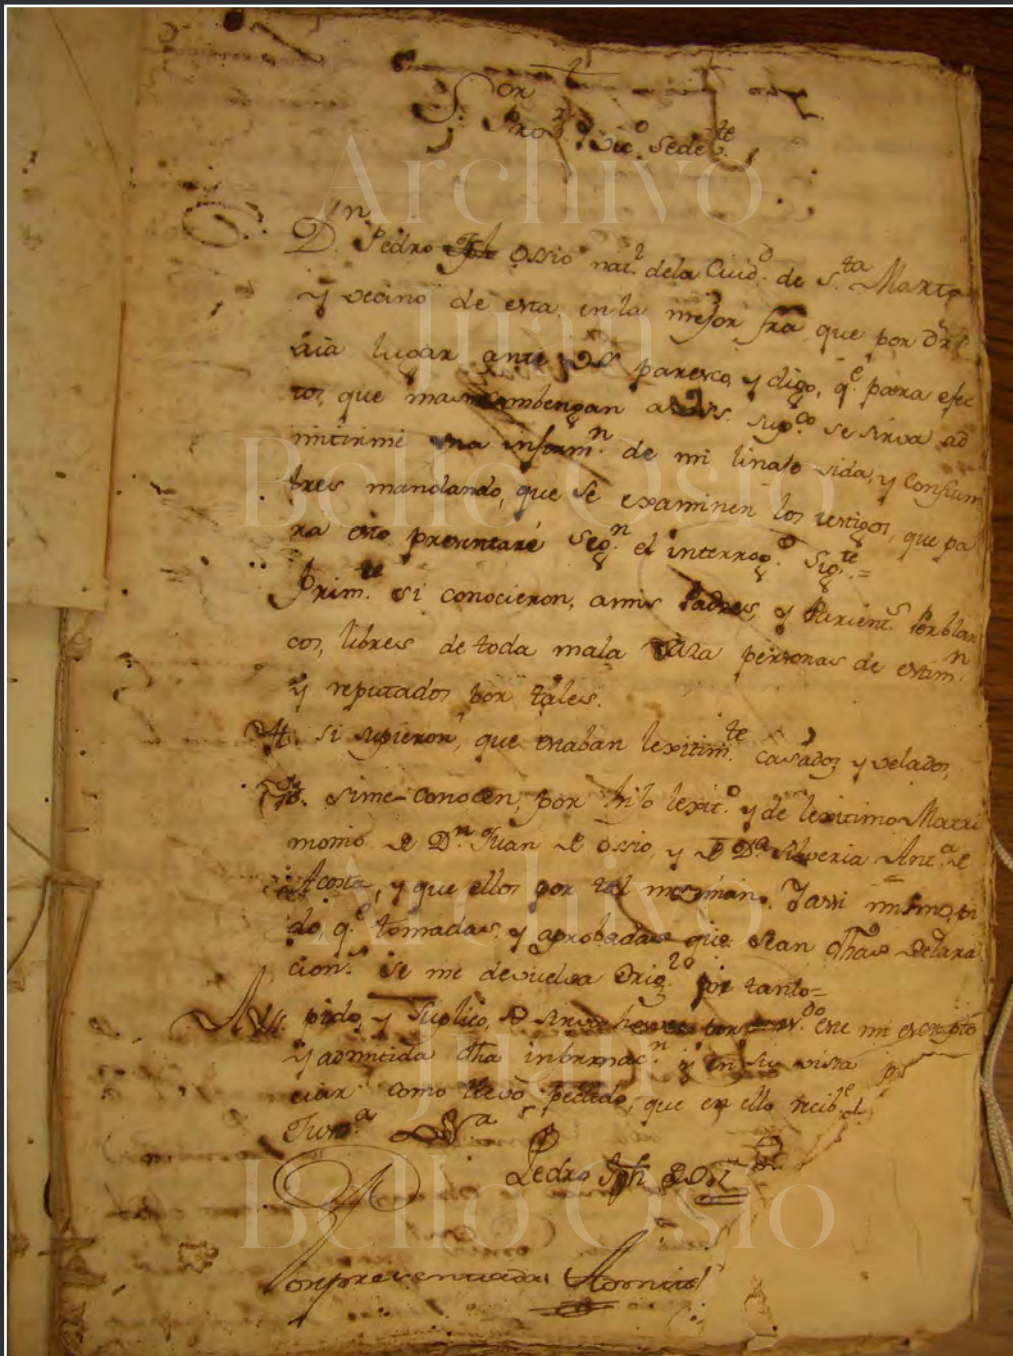 S.or
Pro.r y Vic.o Sede V.te
D.n Pedro Jph Ossio nat.l dela Ciud.d de S.ta Marta
y vecino de esta, en la mejor fra que por dr̃o
aia lugar ante VS paresco, y digo, q.e para efec
tos, que mas combengan a VS. sup.co se sirva ad
mitirme una inform.n de mi linaje vida, y Costum
bres mandando, que se examinen los testigos, que pa
ra esto presentaré seg.n el interrog.o sig.te=
Prim.te si conocieron, amis Padres, y Parient.s por blan
cos, libres de toda mala raza personas de estim.n
y reputados por tales.
Yt. si supieron, que estaban lexitim.te casados, y velados,
Yt. sime conocen, por hijo lexit.o y de lexitimo Matri
monio de D.n Juan de Ossio, y de D.a Silveria Ant.a de
Acosta, y que ellos por tal me Yassi mismo, pi
do, q.e tomadas, y aprobadas que sean dhas declara
cion.s se me devuelva Orig.l por tanto=
A VS. pido, y suplico, se sirva haver por este mi escripto
y admitida dha informac.n y en su vista
ciar como llevo pedido, que en ello recib.e
Jur.o
Pedro Jph de Ossio
Por presentada
Archivo
Juan
Bello Osio
Archivo
Juan
Bello Osio